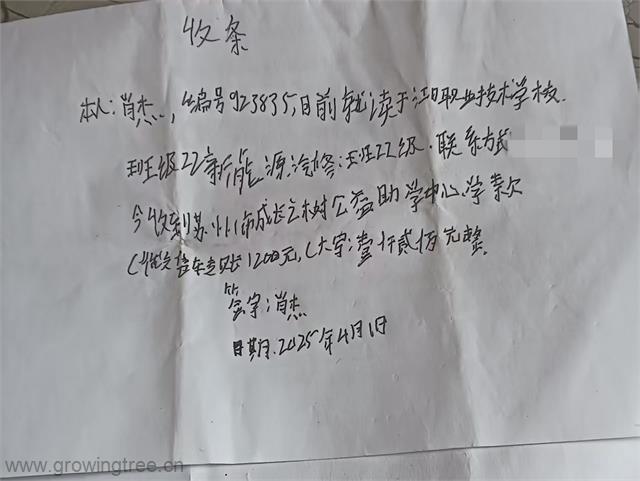 收条
本人:肖杰,编号923835,目前就读于江口职业技术学校.
班级22新能源汽修:班22级.联系方式
今收到苏州市成长之树公益助学中心学款
1200元,(大写:壹仟贰佰元整.
签字:肖杰
日期.2025年4月1日
www.growingtree.cn